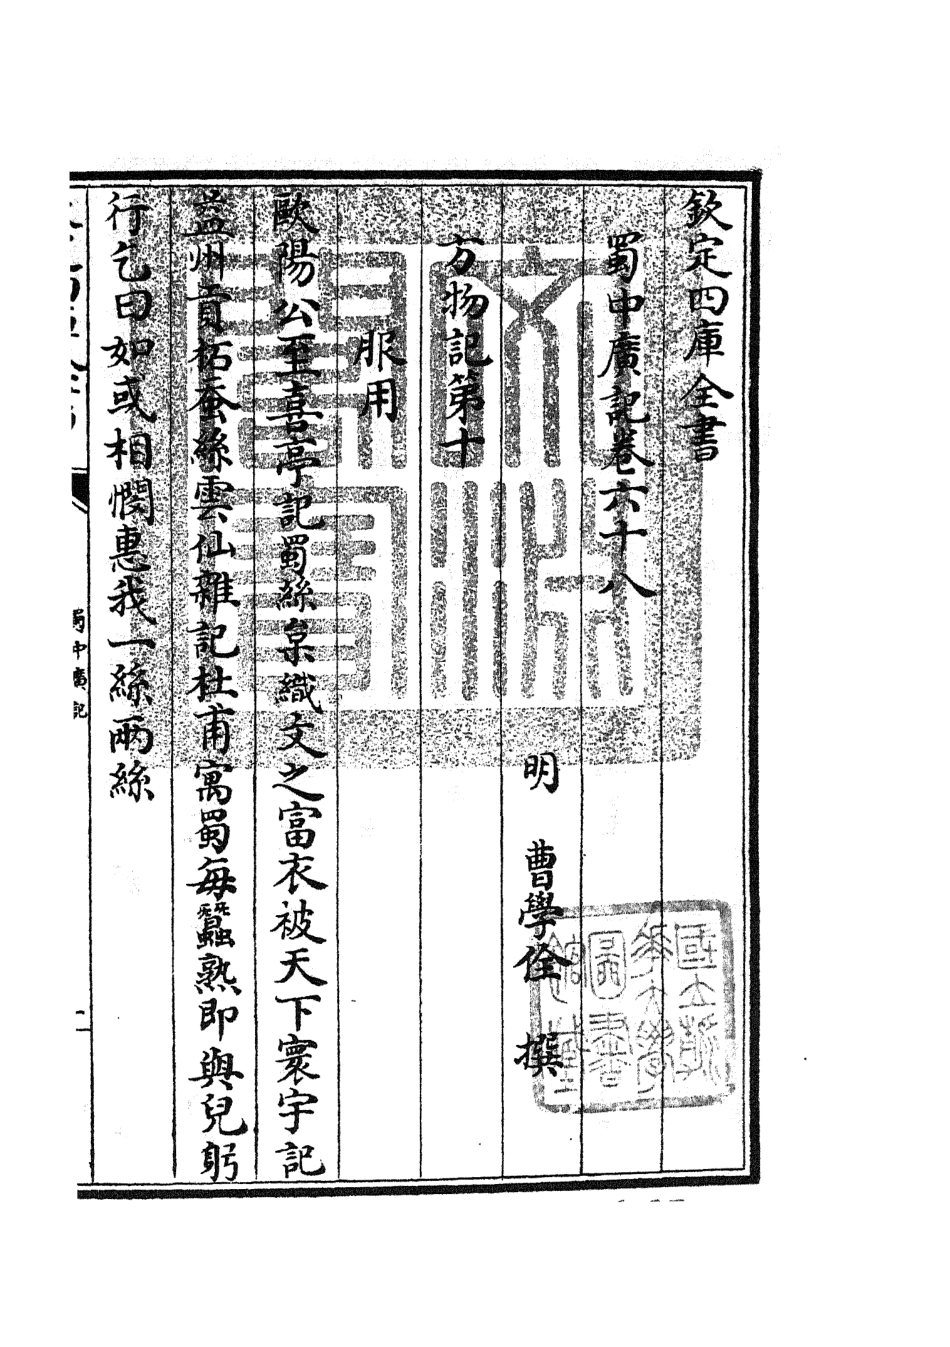 欽定四庫全書
蜀中廣記卷六十八
明 曹學佺 撰
方物記第十
服用
歐陽公至喜亭記蜀絲枲織文之富衣被天下寰宇記
益州貢柘蚕絲雲仙雜記杜甫寓蜀每蠶熟即與兒躬
行乞曰如或相憫惠我一絲兩絲
蜀中廣記